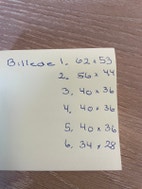 Billede 1. 62 x 53
2. 56 x 44
3. 40 x 36
4. 40 x 36
5. 40 x 36
6. 34 x 28